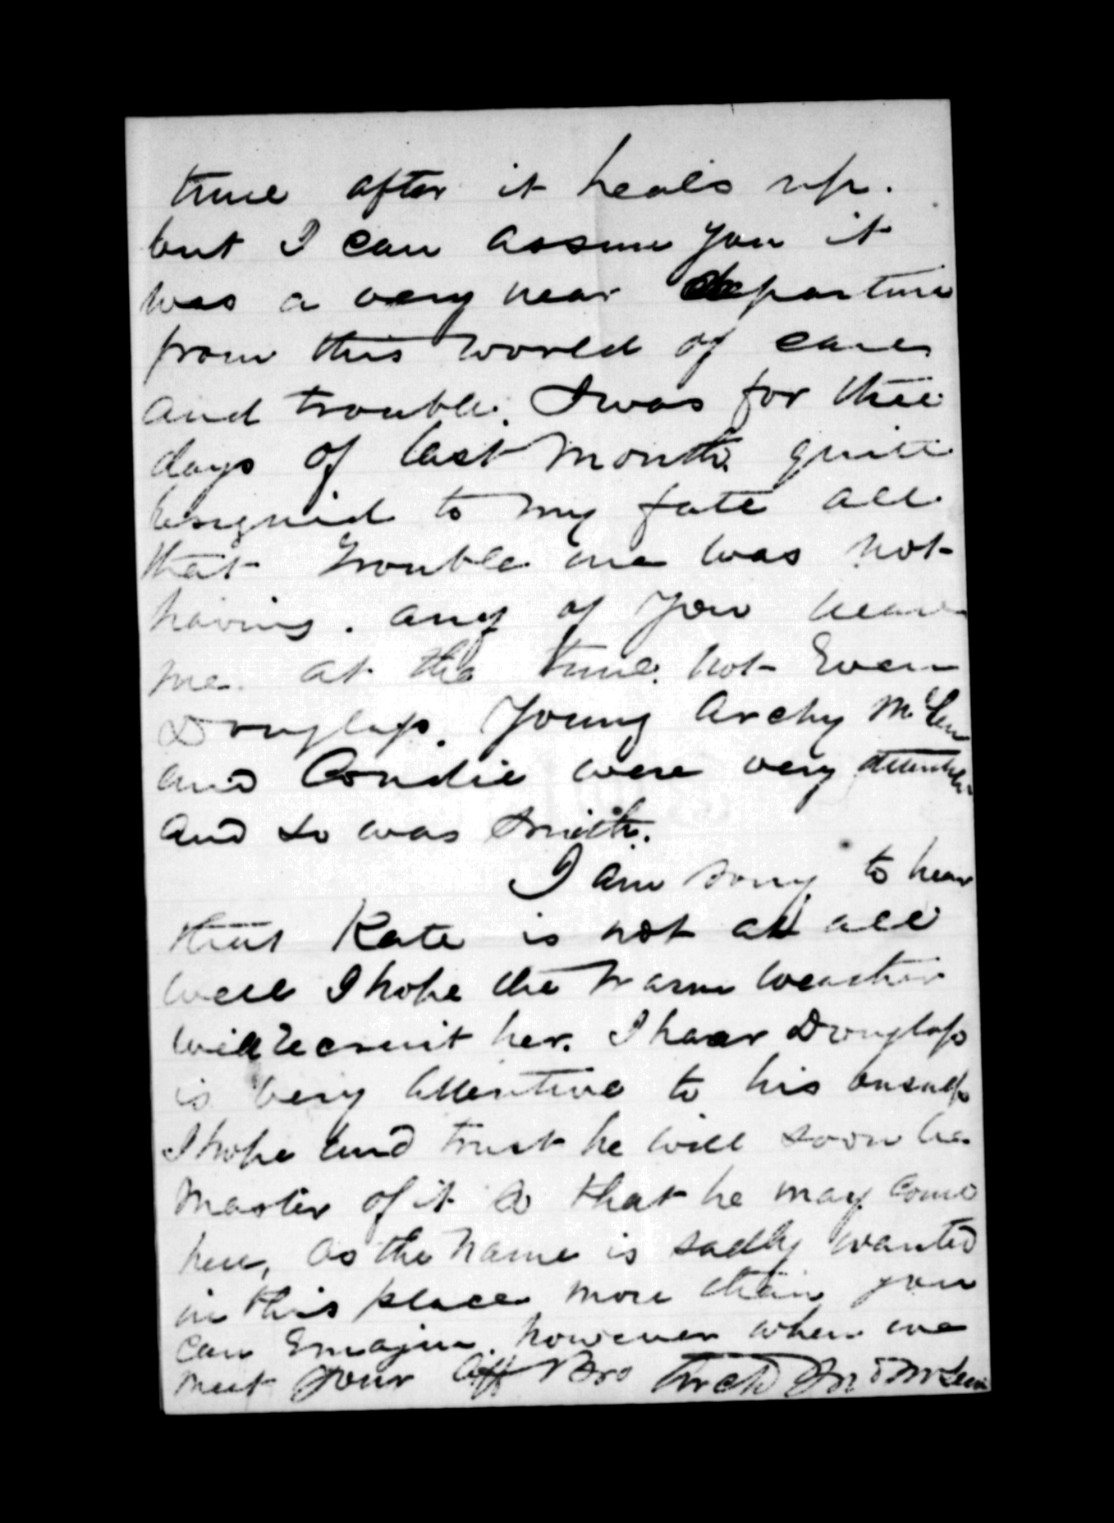 time after it heals up.
but I can assure you it
was a very near departure
from this world of cares
and trouble. I was for three
days of last month quite
resigned to my fate all
that trouble me was not
having. any of you near
me. at the time. not Even
Douglass. Young Archy McLean
and Condie were very attentive
and so was Smith.
I am sorry to hear
that Kate is not at all
well I hope the warm weather
will recruit her. I hear Douglass
is very attentive to his business
I hope and trust he will soon be
Master of it so that he may come
here, as the name is sadly wanted
in this place more than you
can Emagin. however when we
meet Your Aff Bro Archd Jno McLean